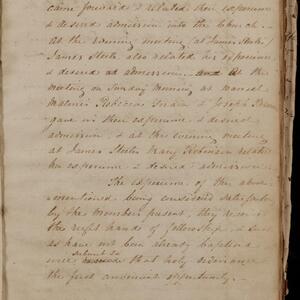 came forward & related their experience
& desired admission into the Church
at the evening meeting at James Steels
James Steele also related his experience
& desired ad admission. And At the
meeting on Sunday morning at
Rebecca & Joseph
gave in their experience & desired
admission & at the evening meeting
at James Steeles Mary Robinson related
her experience & desired admission.
The experience of the above
mentioned being considered satisfactory
by the members present, they receive
the right hand of fellowship, & such
as have not been already baptised
submit to
were that holy ordinance
the first convenient opportunity.